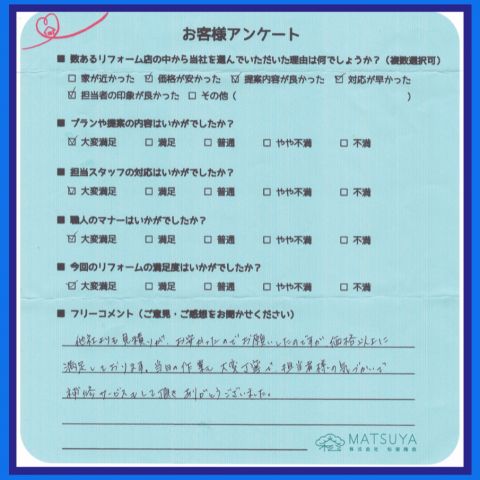 お客様アンケート
■ 数あるリフォーム店の中から当社を選んでいただいた理由は何でしょうか？（複数選択可）
□ 家が近かった ☑ 価格が安かった ☑ 提案内容が良かった ☑ 対応が早かった
☑ 担当者の印象が良かった □ その他（ ）
■ プランや提案の内容はいかがでしたか？
☑ 大変満足 □ 満足 □ 普通 □ やや不満 □ 不満
■ 担当スタッフの対応はいかがでしたか？
☑ 大変満足 □ 満足 □ 普通 □ やや不満 □ 不満
■ 職人のマナーはいかがでしたか？
☑ 大変満足 □ 満足 □ 普通 □ やや不満 □ 不満
■ 今回のリフォームの満足度はいかがでしたか？
☑ 大変満足 □ 満足 □ 普通 □ やや不満 □ 不満
■ フリーコメント（ご意見・ご感想をお聞かせください）
他社よりも見積りが、お安かったのでお願いしたのですが価格以上に
満足しております。当日の作業も大変丁寧で、担当者様の気づかいで
補修サービスもして頂き ありがとうございました。
MATSUYA
株式会社